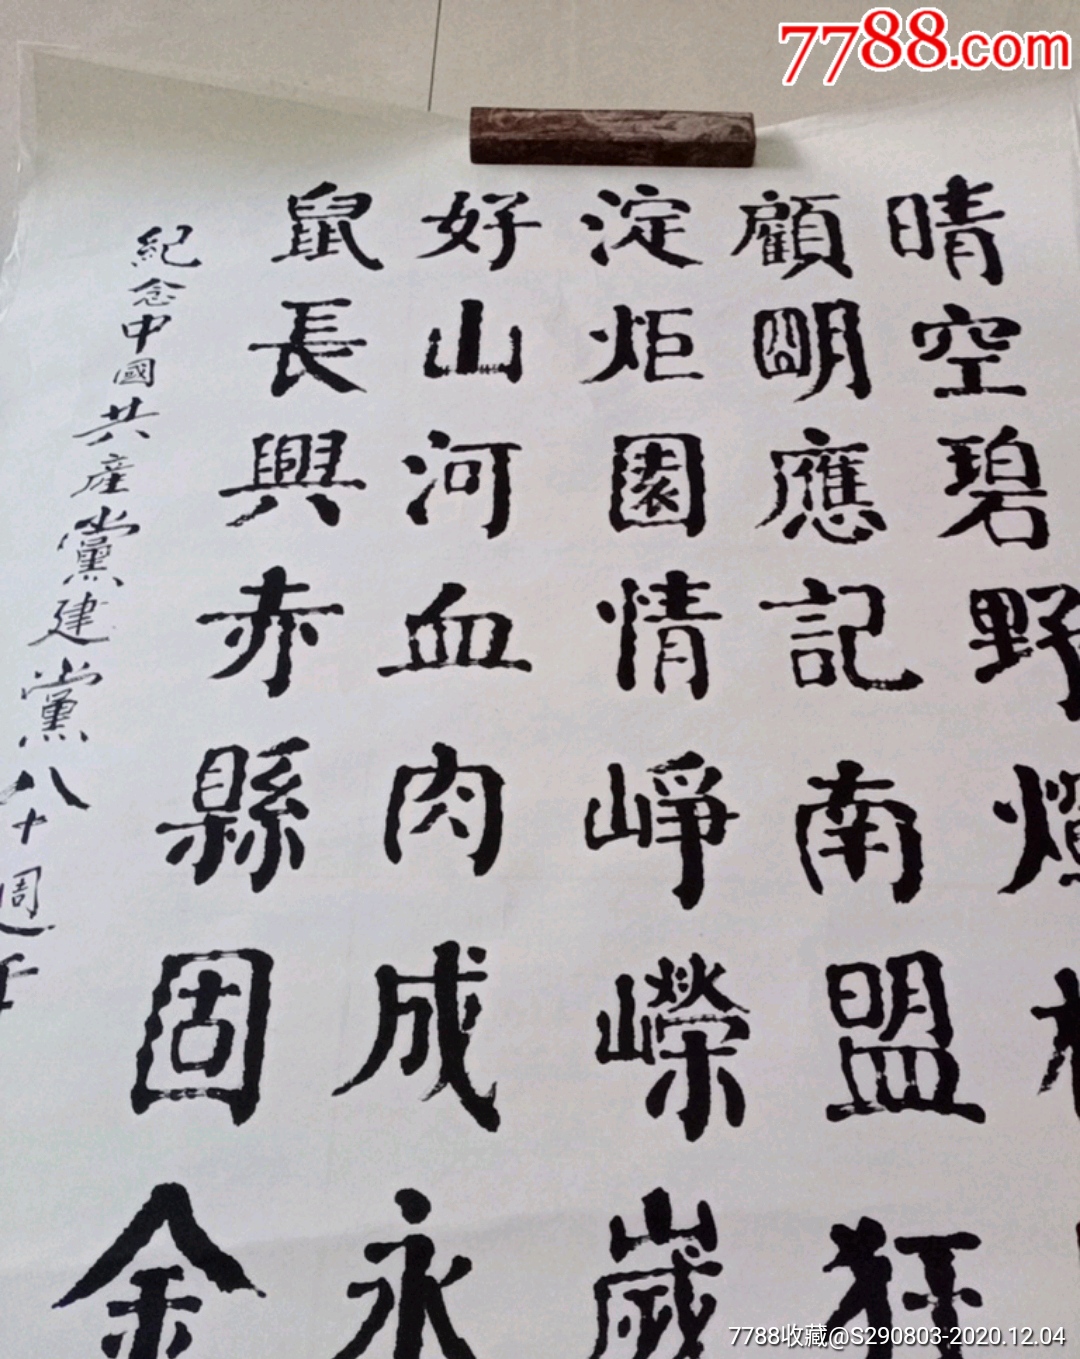 7788.com
晴空碧野
顧朙應記南盟
淀炬園情崢嶸歲
好山河血肉成永
鼠長興赤縣固金
紀念中國共産黨建黨八十週年
7788收藏@S290803-2020.12.04